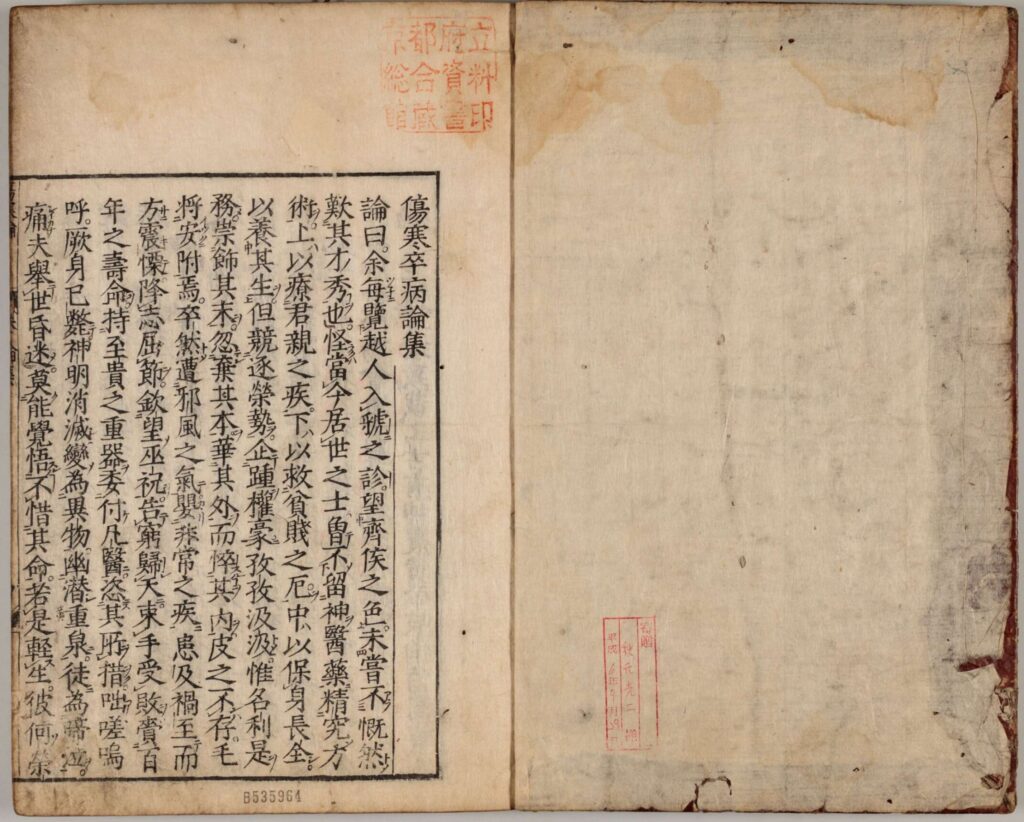 京都府立
総合資料
館蔵書印
傷寒卒病論集
論曰。余每覽越人入虢之診。望齊侯之色。未嘗不慨然
歎其才秀也。怪當今居世之士。曽不留神醫藥精究方
術。上以療君親之疾。下以救貧賤之厄。中以保身長全。
以養其生。但競逐榮勢。企踵權豪。孜孜汲汲。惟名利是
務。崇飾其末。忽棄其本。華其外。而悴其内。皮之不存。毛
将安附焉。卒然遭邪風之氣。嬰非常之疾。患及禍至。而
方震慄。降志屈節。欽望巫祝。告窮歸天。束手受敗。賷百
年之壽命。持至貴之重器。委付凡醫。恣其所措。咄嗟嗚
呼。厥身已斃。神明消滅。變為異物。幽潜重泉。徒為啼泣。
痛夫。舉世昏迷。莫能覺悟。不惜其命。若是軽生。彼何榮
B535964